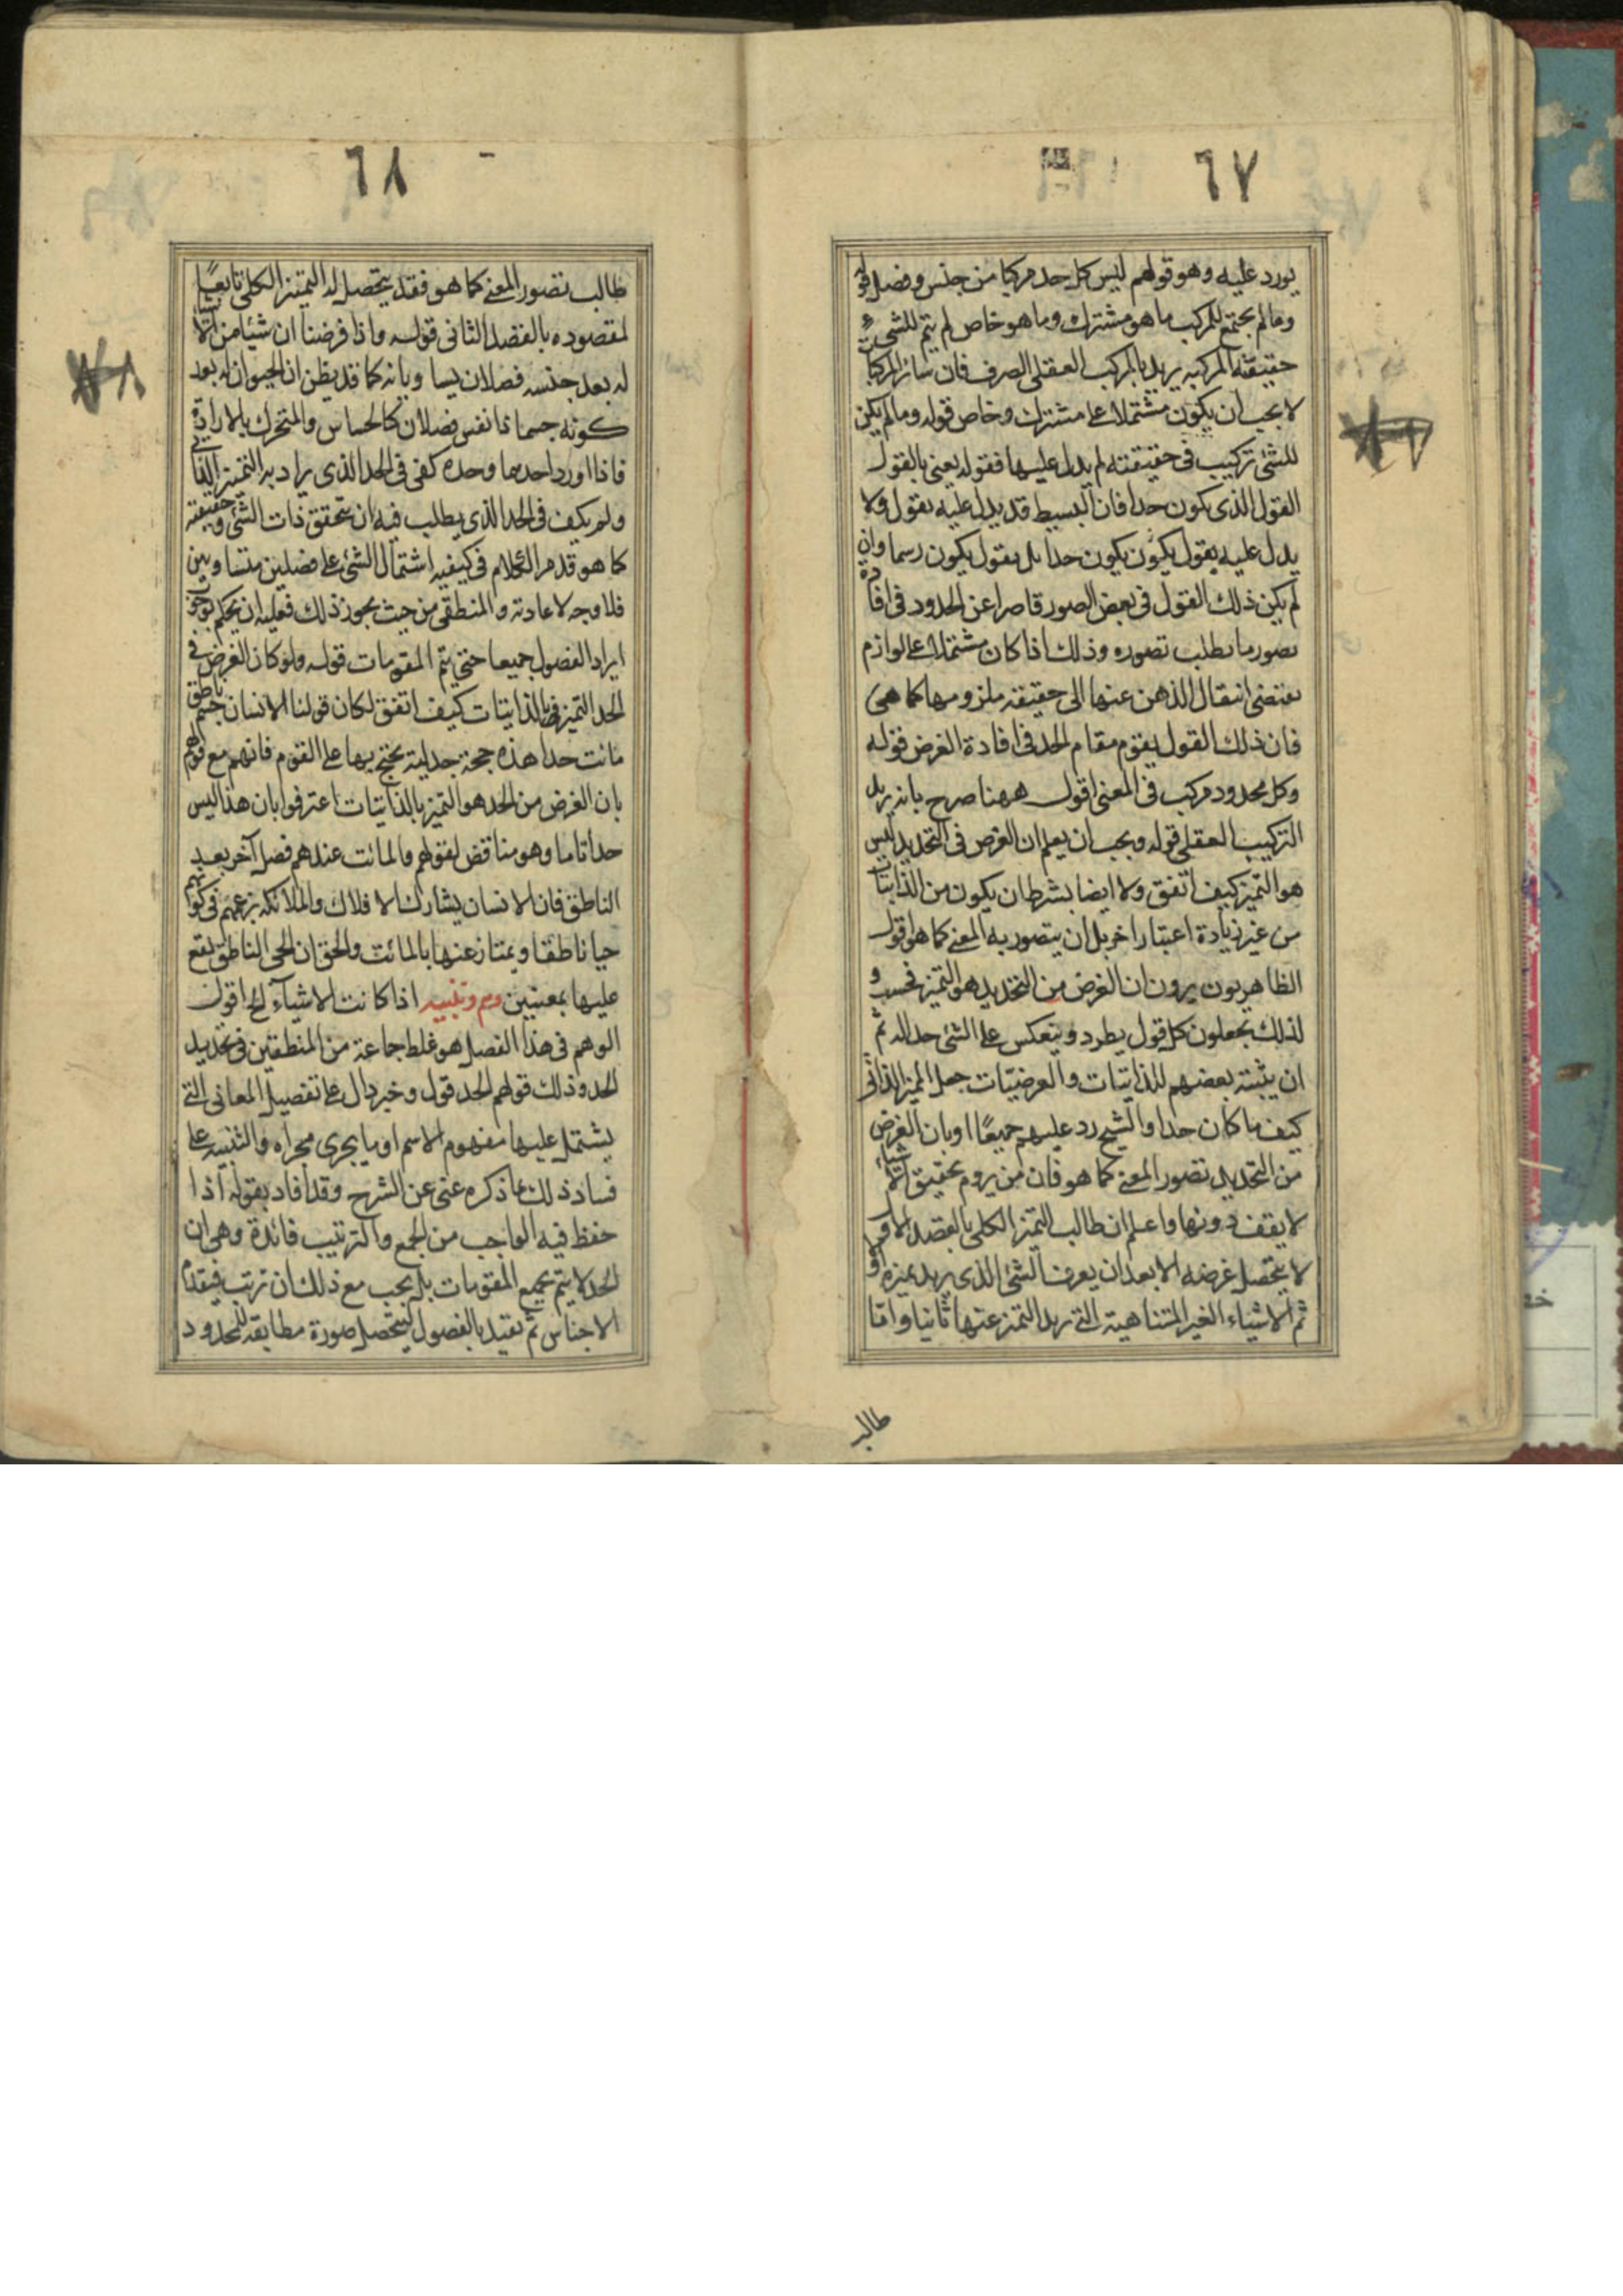 ٦٧
يورد عليه وهو قولهم ليس كل حد مركبا من جنس وفصل قوله
وما لم يجتمع للمركب ما هو مشترك وما هو خاص لم يتم للشئ
حقيقته المركبه يريد بالمركب العقلى الصرف فان سائر المركبات
لا يجب ان يكون مشتملا على مشترك وخاص قوله وما لم يكن
للشئ تركيب فى حقيقته لم يدل عليها فقوله يعنى بالقول
القول الذى يكون حدا فان البسيط قد يدل عليه بقول ولا
يدل عليه بقول يكون يكون حدا بل بقول يكون رسما وان
لم يكن ذلك القول فى بعض الصور قاصرا عن الحدود فى افادة
تصور ما يطلب تصوره وذلك اذا كان مشتملا على لوازم
يقتضى انتقال الذهن عنها الى حقيقة ملزومها كما هى
فان ذلك القول يقوم مقام الحد فى افادة الغرض قوله
وكل محدود مركب فى المعنى اقول ههنا صرح بانه يريد
التركيب العقلى قوله ويجب ان يعلم ان الغرض فى التحديد ليس
هو التميز كيف اتفق ولا ايضا بشرط ان يكون من الذاتيات
من غير زيادة اعتبار اخر بل ان يتصور به المعنى كما هو اقول
الظاهريون يرون ان الغرض من التحديد هو التميز فحسب و
لذلك يجعلون كل قول يطرد وينعكس على الشئ حدا له ثم
ان يثبته بعضهم للذاتيات والعرضيّات جعل المميز الذاتى
كيف ما كان حدا والشيخ رد عليهم جميعًا اوبان الغرض
من التحديد تصور المعنى كما هو فان من يروم تحقيق الاشياء
لا يقف دونها واعلم ان طالب التميز الكلى بالقصد الاول
لا يتحصل غرضه الا بعد ان يعرف الشئ الذى يريد تميزه اولا
ثم الاشياء الغير المتناهية التى يريد التميز عنها ثانيا وامّا
طالب
٦٨
طالب تصور المعنى كما هو فقد يتحصل له التميز الكلى تابعًا
لمقصوده بالقصد الثانى قوله واذا فرضنا ان شيئا من الاشياء
له بعد جنسه فصلان يساويانه كما قد يظن ان الحيوان له بعد
كونه جسما ذا نفس فصلان كالحساس والمتحرك بالارادة
فاذا اورد احدهما وحده كفى فى الحد الذى يراد به التميز الذاتى
ولم يكف فى الحد الذى يطلب فيه ان يتحقق ذات الشئ وحقيقته
كما هو قد مر الكلام فى كيفيه اشتمال الشئ على فصلين متساويين
فلا وجه لاعادته والمنطقى من حيث يجوز ذلك فعليه ان يحكم بوجوب
ايراد الفصول جميعا حتى يتم المقومات قوله ولو كان الغرض فى
الحد التميز بالذاتيات كيف اتفق لكان قولنا الانسان جسم ناطق
مائت حدا هذه حجة جدلية يحتج بها على القوم فانهم مع قولهم
بان الغرض من الحد هو التميز بالذاتيات اعترفوا بان هذا ليس
حدا تاما وهو مناقض لقولهم والمائت عندهم فصل آخر بعد
الناطق فان الانسان يشارك الافلاك والملائكة بزعمهم فى كونهم
حيا ناطقا ويمتاز عنها بالمائت والحق ان الحى الناطق يقع
عليها بمعنيين وهم وتنبيه اذا كانت الاشيآء الخ اقول
الوهم فى هذا الفصل هو غلط جماعة من المنطقيين فى تحديد
الحد وذلك قولهم الحد قول وخير دال على تفصيل المعانى التى
يشتمل عليها مفهوم الاسم او ما يجرى مجراه والتنبيه على
فساد ذلك بما ذكره غنى عن الشرح وقد افاد بقوله اذا
حفظ فيه الواجب من الجمع والترتيب فائدة وهى ان
الحد لا يتم بجميع المقومات بل يجب مع ذلك ان ترتب فيقدم
الاجناس ثم تقيد بالفصول ليتحصل صورة مطابقه للمحدود